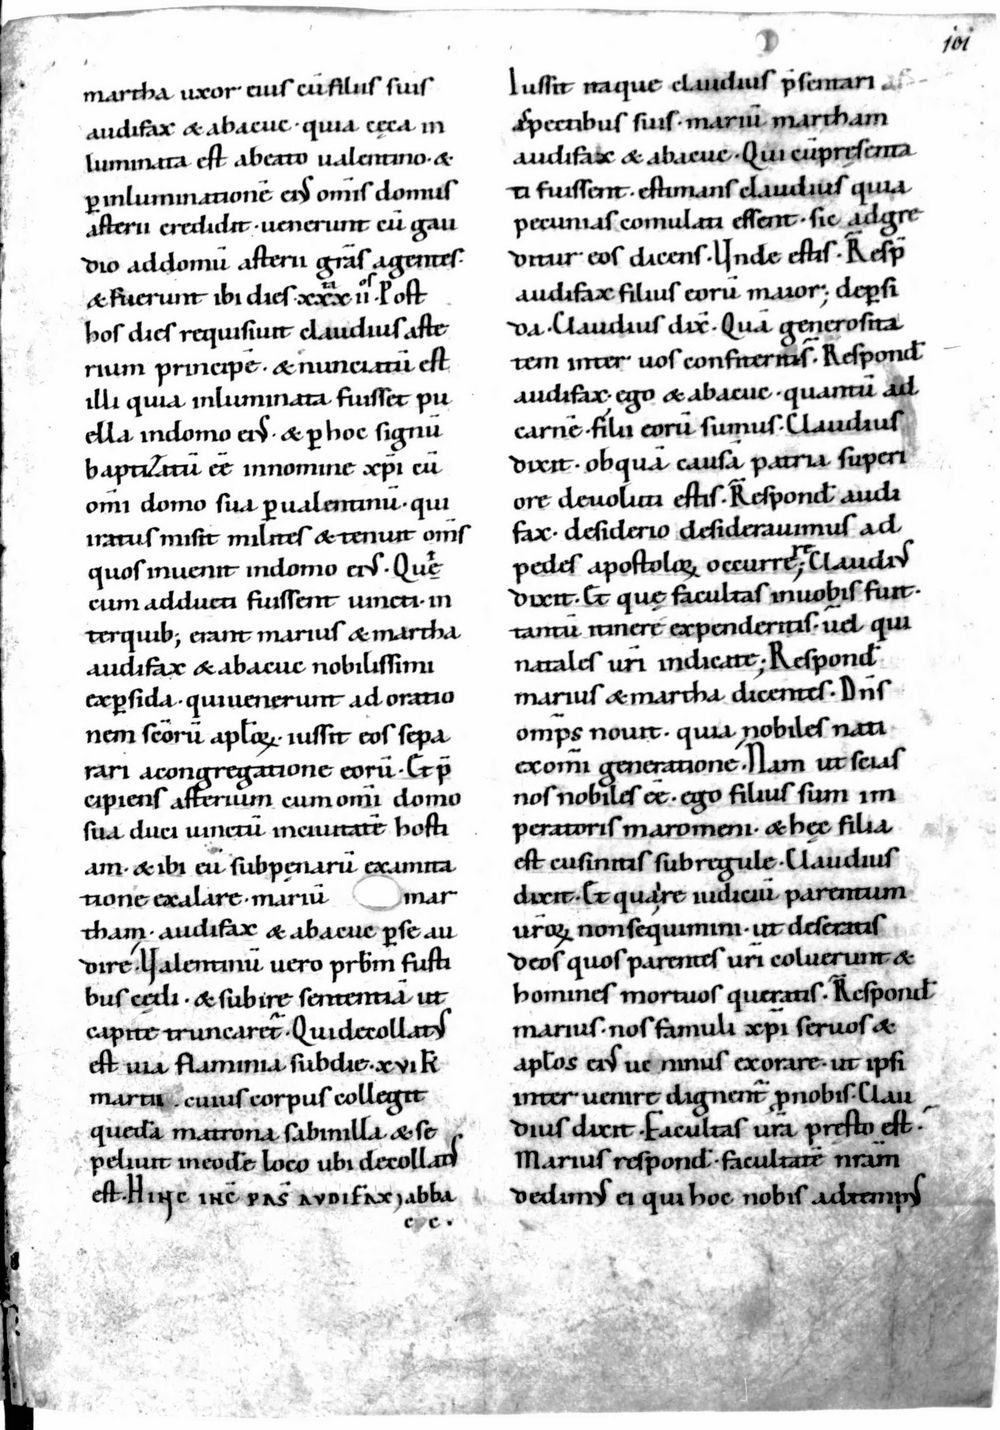 101
martha uxor eius cū filiis suis
audifax & abacuc · quia cęca in
luminata est abeato ualentino · &
ꝑ inluminationē eiꝰ om̄s domus
asterii credidit · uenerunt cū gau
dio addomū asterii gr̄as agentes ·
& fuerunt ibi dies · xxx ii · Post
hos dies requisiuit claudius aste
rium principē · & nunciatū est
illi quia inluminata fuisset pu
ella indomo eiꝰ · & ꝑ hoc signū
baptizatū eē innomine xp̄i cū
om̄i domo sua ꝑ ualentinū · qui
iratus misit milites & tenuit om̄s
quos inuenit indomo eiꝰ · Qui
cum adducti fuissent uincti · in
terquib; erant marius & martha
audifax & abacuc nobilissimi
exꝑsida · qui uenerunt ad oratio
nem sc̄orū apl̄oꝝ · iussit eos sepa
rari acongregatione eorū · Et p̄
cipiens asterium cum om̄i domo
sua duci uinctū inciuitatē hosti
am · & ibi eū subpenarū examita
tione exalare · mariū mar
tham · audifax & abacuc p̄se au
dire · Ualentinū uero prb̄m fusti
bus cędi · & subire sententiā ut
capite truncaret̄ · Qui decollatꝰ
est uia flaminia subdie · xvi k̄
martii · cuius corpus collegit
quedā matrona sabinilla · & se
peliuit ineodē loco ubi decollatꝰ
est · HINC INC̄ PAS̄ AUDIFAX; abba
c c ·
Iussit itaque claudius p̄sentari
aspectibus suis · mariū martham
audifax & abacuc · Qui cū pręsenta
ti fuissent · estimans claudius quia
pecunias comulati essent · sic adgre
ditur eos dicens · Unde estis · Resp̄
audifax filius eorū maior; deꝑsi
da · Claudius dix̄ · Quā generosita
tem inter uos confitemini · Respond̄
audifax; ego & abacuc · quantū ad
carnē · filii eorū sumus · Claudius
dixit · ob quā causā patria superi
ore deuoluti estis · Respond̄ audi
fax · desiderio desiderauimus ad
pedes apostoloꝝ occurrere; Claudiꝰ
dixit · Et quę facultas inuobis fuit ·
tantū itinere expenderitis · ūel qui
natales ur̄i indicate; Respond̄
marius & martha dicentes · Dn̄s
omp̄s nouit · quia nobiles nati
exom̄i generatione · Nam ut scias
nos nobiles eē · ego filius sum im
peratoris maromeni · & hęc filia
est cusinitis subregule · Claudius
dixit · Et quare iudiciū parentum
ur̄oꝝ non sequimini · ut deseratis
deos quos parentes ur̄i coluerunt &
homines mortuos queratis · Respond̄
marius · nos famuli xp̄i seruos &
apl̄os eiꝰ uenimus exorare · ut ipsi
inter uenire dignent̄ ꝓnobis · Clau
dius dixit · Facultas ur̄a presto est ·
Marius respond̄ · facultatē nr̄am
dedimꝰ ei qui hoc nobis adtempꝰ